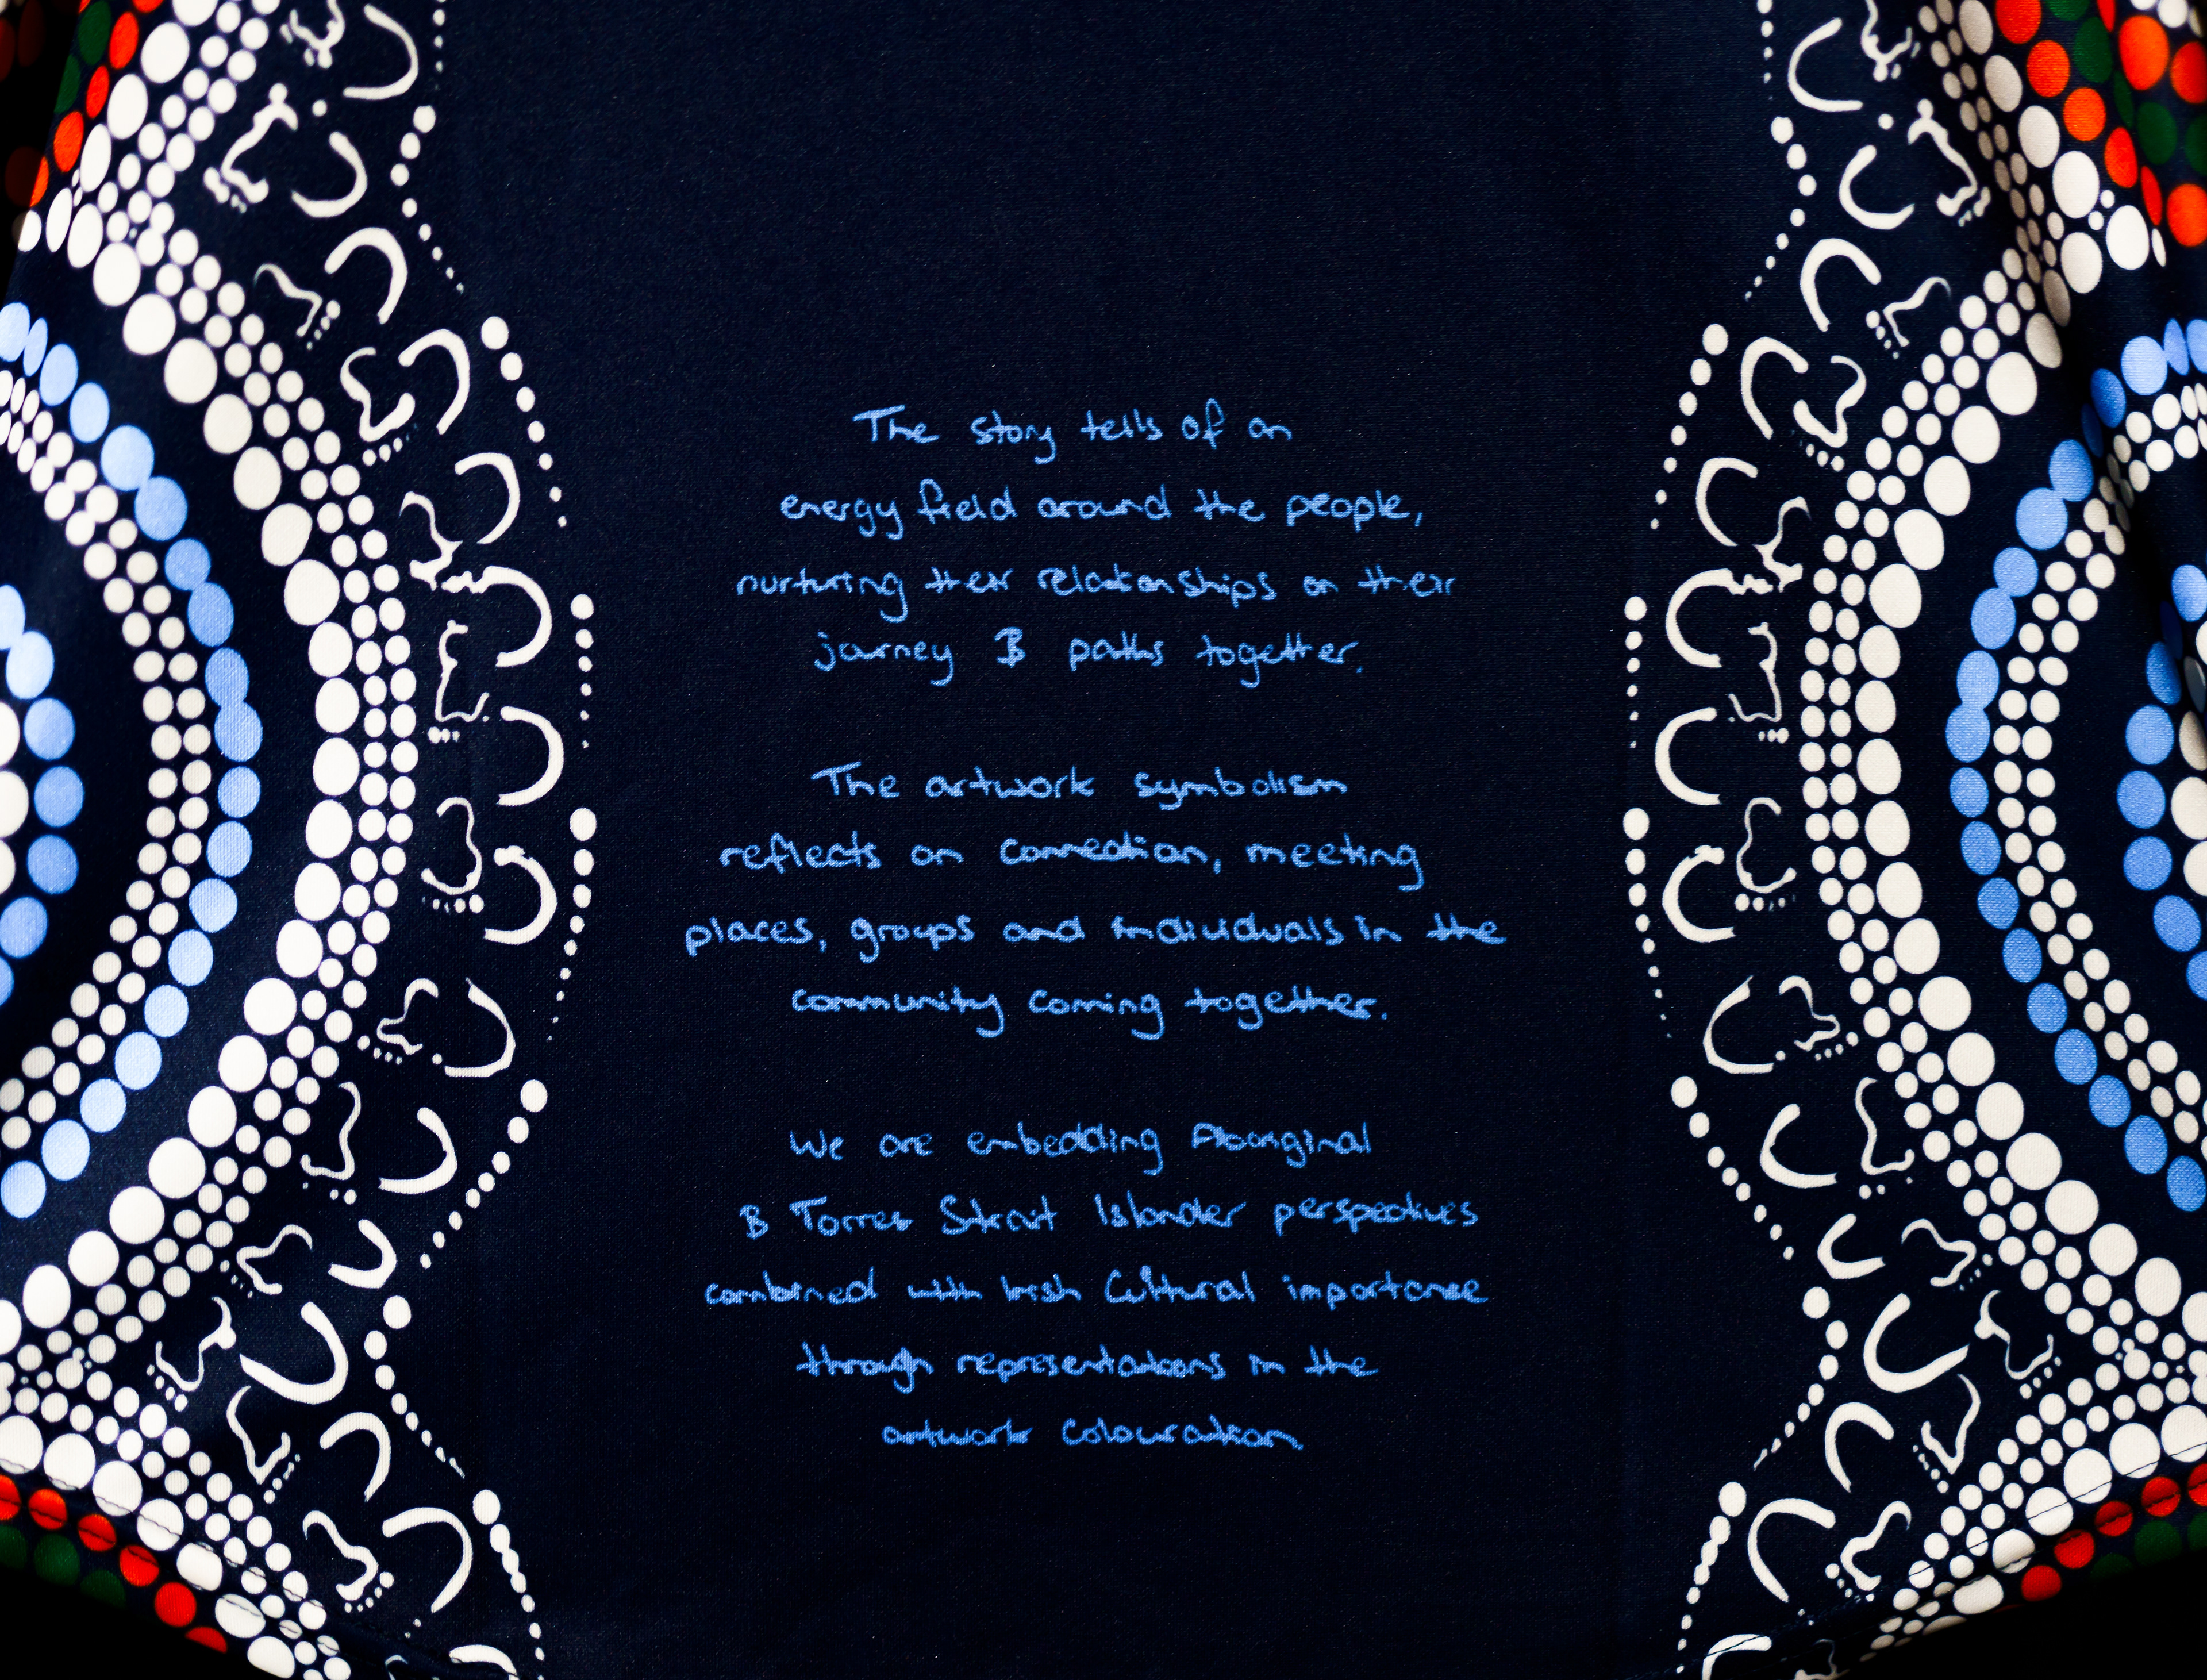 The story tells of an
energy field around the people,
nurturing their relationships on their
journey & paths together.
The artwork symbolism
reflects on connection, meeting
places, groups and individuals in the
community coming together.
We are embedding Aboriginal
& Torres Strait Islander perspectives
combined with Irish Cultural importance
through representations in the
artwork colouration.